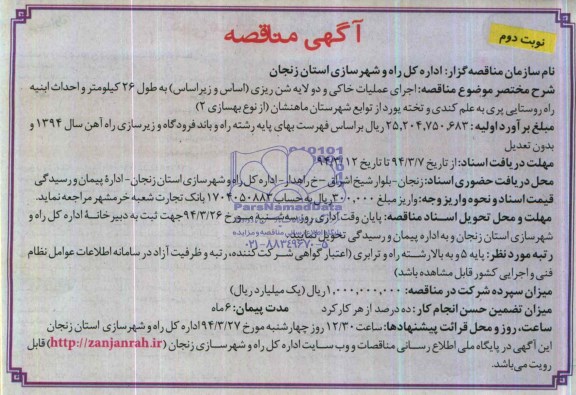 آگهی مناقصه
نوبت دوم
نام سازمان مناقصه گزار: اداره کل راه و شهرسازی استان زنجان
شرح مختصر موضوع مناقصه: اجرای عملیات خاکی و دو لایه شن ریزی (اساس و زیراساس) به طول ۲۶ کیلومتر و احداث ابنیه
راه روستایی پری به علم کندی و تخته یورد از توابع شهرستان ماهنشان (از نوع بهسازی ۲)
مبلغ برآورد اولیه: ۲۵,۲۰۴,۷۵۰,۶۸۳ ریال براساس فهرست بهای پایه رشته راه و باند فرودگاه و زیرسازی راه آهن سال ۱۳۹۴ و
بدون تعدیل
مهلت دریافت اسناد: از تاریخ ۹۴/۳/۷ تا تاریخ ۹۴/۳/۱۲
محل دریافت حضوری اسناد: زنجان- بلوار شیخ اشراق - خ راهدار- اداره کل راه و شهرسازی استان زنجان- ادارۀ پیمان و رسیدگی
قیمت اسناد و نحوه واریز وجه: واریز مبلغ ۳۰۰,۰۰۰ ریال به حساب ۱۷۰۴۰۵۰۸۸۳ بانک تجارت شعبه خرمشهر مراجعه نماید.
مهلت و محل تحویل اسناد مناقصه: پایان وقت اداری روز سه شنبه مورخ ۹۴/۳/۲۶ جهت ثبت به دبیرخانۀ اداره کل راه و
شهرسازی استان زنجان و به اداره پیمان و رسیدگی تحویل نمایند.
رتبه مورد نظر: پایه ۵ و به بالا رشته راه و ترابری (اعتبار گواهی شرکت کننده، رتبه و ظرفیت آزاد در سامانه اطلاعات عوامل نظام
فنی و اجرایی کشور قابل مشاهده باشد)
میزان سپرده شرکت در مناقصه: ۱,۰۰۰,۰۰۰,۰۰۰ ریال (یک میلیارد ریال)
میزان تضمین حسن انجام کار: ده درصد از هر کارکرد مدت پیمان: ۶ ماه
ساعت، روز و محل قرائت پیشنهادها: ساعت ۱۲/۳۰ روز چهارشنبه مورخ ۹۴/۳/۲۷ اداره کل راه و شهرسازی استان زنجان
این آگهی در پایگاه ملی اطلاع رسانی مناقصات و وب سایت اداره کل راه و شهرسازی زنجان (http://zanjanrah.ir) قابل
رویت می‌باشد.
ParsNamadData
۰۲۱-۸۸۳۴۹۶۷۰-۵